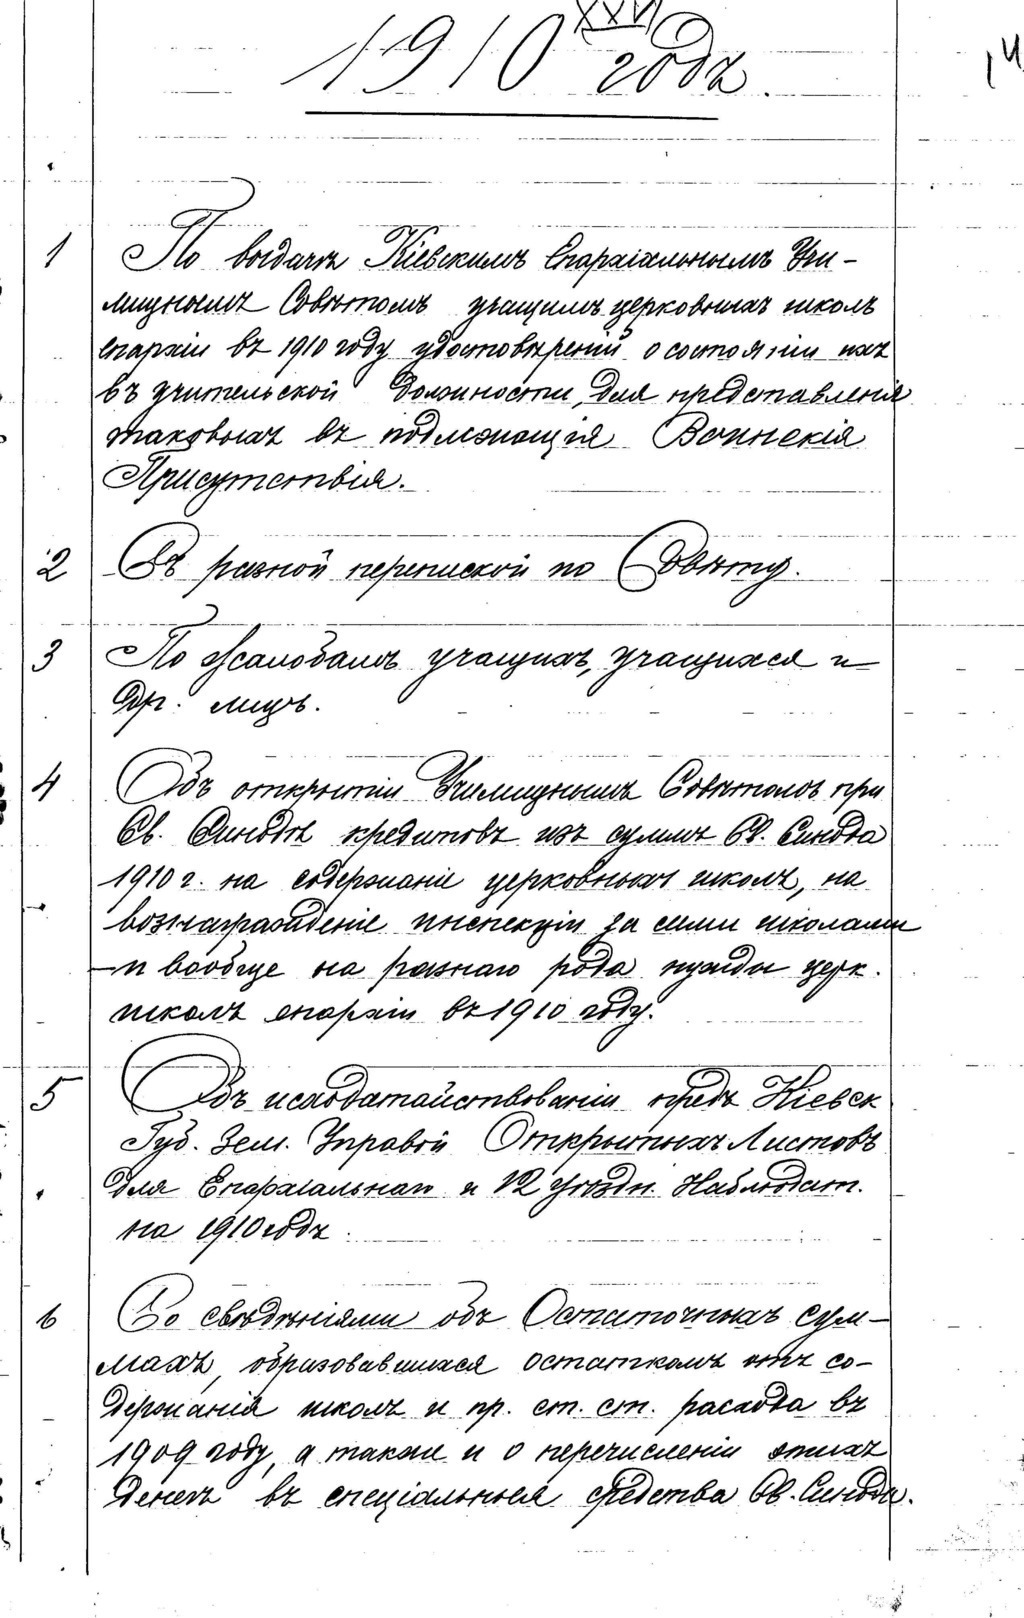 XXVI
1910 годъ.
14
1 По выдачѣ Кіевскимъ Епархіальнымъ Учи-
лищнымъ Совѣтомъ учащимъ церковныхъ школъ
епархіи въ 1910 году удостовѣреній о состояніи ихъ
въ учительской должности, для представленія
таковыхъ въ подлежащія Воинскія
Присутствія.
2 Съ разной перепиской по Совѣту.
3 По жалобамъ учащихъ, учащихся и
др. лицъ.
4 Объ открытіи Училищнымъ Совѣтомъ при
Св. Синодѣ кредитовъ изъ суммъ Св. Синода
1910 г. на содержаніе церковныхъ школъ, на
вознагражденіе инспекціи за сими школами
и вообще на разнаго рода нужды церк.
школъ епархіи въ 1910 году.
5 Объ исходатайствованіи предъ Кіевск
Губ. Зем. Управой Открытыхъ Листовъ
для Епархіальнаг и 12 уѣздн. Наблюдат.
на 1910 годъ.
6 Со свѣдѣніями объ Остаточныхъ сум-
махъ, образовавшихся остаткомъ отъ со-
держанія школъ и пр. ст. ст. расхода въ
1909 году, а также и о перечисленіи этихъ
денегъ въ спеціальныя средства Св. Синода.